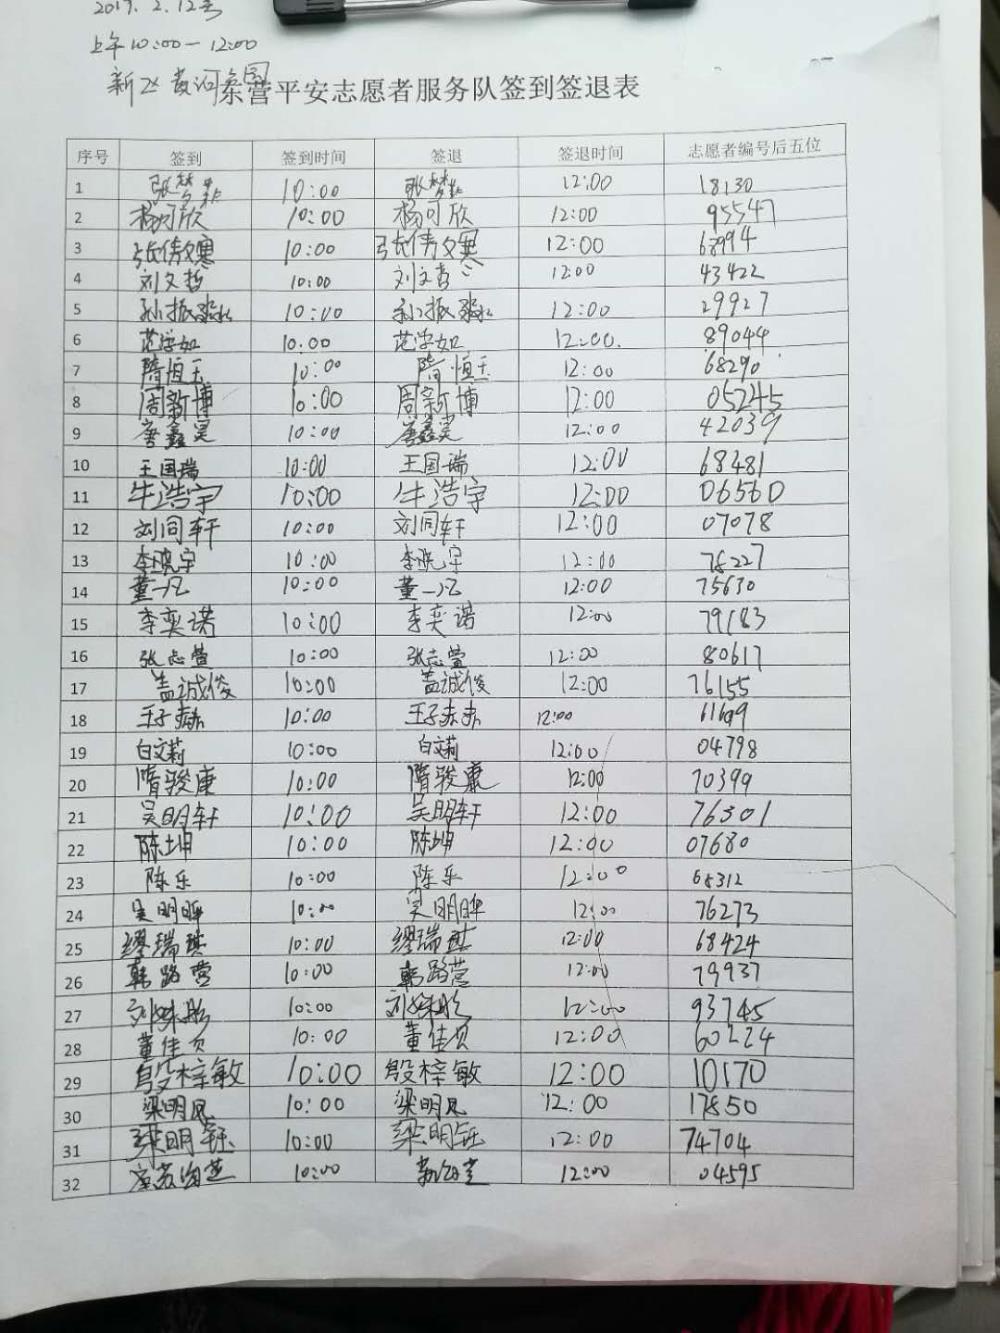 2019.2.12号
上午10:00-12:00
新 黄河
东营平安志愿者服务队签到签退表
序号 签到 签到时间 签退 签退时间 志愿者编号后五位
1 张梦 10:00 张梦 12:00 18130
2 杨可欣 10:00 杨可欣 12:00 95547
3 张倩文寒 10:00 张倩文寒 12:00 67994
4 刘文哲 10:00 刘文哲 12:00 43422
5 孙振 10:00 孙振 12:00 29927
6 范学如 10:00 范学如 12:00 89044
7 隋恒玉 10:00 隋恒玉 12:00 68290
8 周新博 10:00 周新博 12:00 05245
9 唐鑫昊 10:00 唐鑫昊 12:00 42039
10 王国瑞 10:00 王国瑞 12:00 68481
11 牛浩宇 10:00 牛浩宇 12:00 06560
12 刘同轩 10:00 刘同轩 12:00 07078
13 李晓宇 10:00 李晓宇 12:00 78227
14 董一 10:00 董一 12:00 75630
15 李奕诺 10:00 李奕诺 12:00 79183
16 张志萱 10:00 张志萱 12:00 80617
17 盖诚俊 10:00 盖诚俊 12:00 76155
18 王子赫 10:00 王子赫 12:00
19 白文莉 10:00 白文莉 12:00 04798
20 隋骏康 10:00 隋骏康 12:00 70399
21 吴明轩 10:00 吴明轩 12:00 76301
22 陈坤 10:00 陈坤 12:00 07680
23 陈乐 10:00 陈乐 12:00 65312
24 吴明晔 10:00 吴明晔 12:00 76273
25 缪瑞琪 10:00 缪瑞琪 12:00 68424
26 韩路营 10:00 韩路营 12:00 79937
27 刘姝彤 10:00 刘姝彤 12:00 93745
28 董佳贝 10:00 董佳贝 12:00 60224
29 殷梓敏 10:00 殷梓敏 12:00 10170
30 梁明凤 10:00 梁明凤 12:00 17850
31 梁明钰 10:00 梁明钰 12:00 74704
32 10:00 12:00 04595